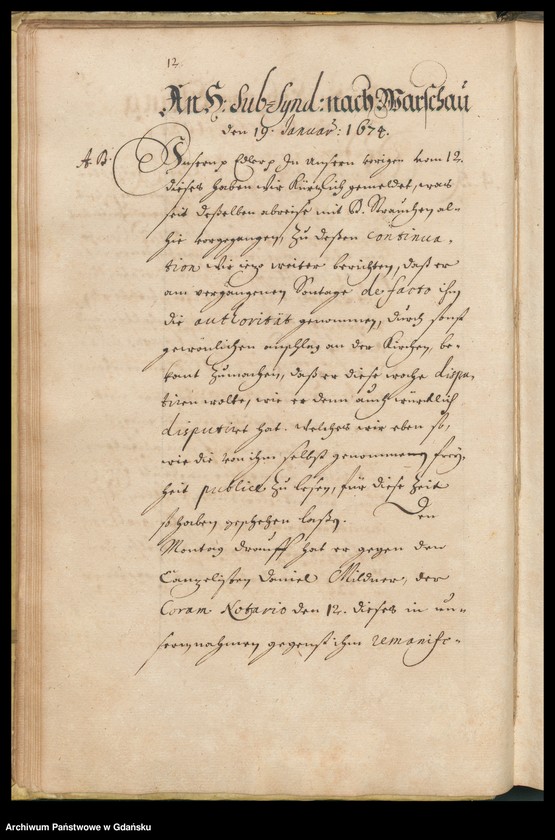 12.
An H. Sub-Synd: nach Warschau
den 19. Januar: 1674.
A. B. Unsern p Edler p In unserm vorigen vom 12.
dieses haben wir kürtzlich gemeldet, was
seit deßelben abreise mit D. Strauchen al-
hie vorgegangen, zu deßen continua-
tion wir ietzo weiter berichten, daß er
am vergangenen Sontage de facto ihm
die authorität genommen, durch sonst
gewönlichen anschlag an der Kirchen, be-
kant zumachen, daß er diese woche dispu-
tiren wolte, wie er denn auch würklich
disputiret hat. welches wir eben so,
wie die von ihm selbst genommene frey-
heit publice zu lesen, für diese Zeit
so haben geschehen laßen. Den
Montag drauff hat er gegen den
Canzelisten Daniel Mildner, der
Coram Notario den 12. dieses in un-
serm nahmen gegenst ihm remanife-
Archiwum Państwowe w Gdańsku